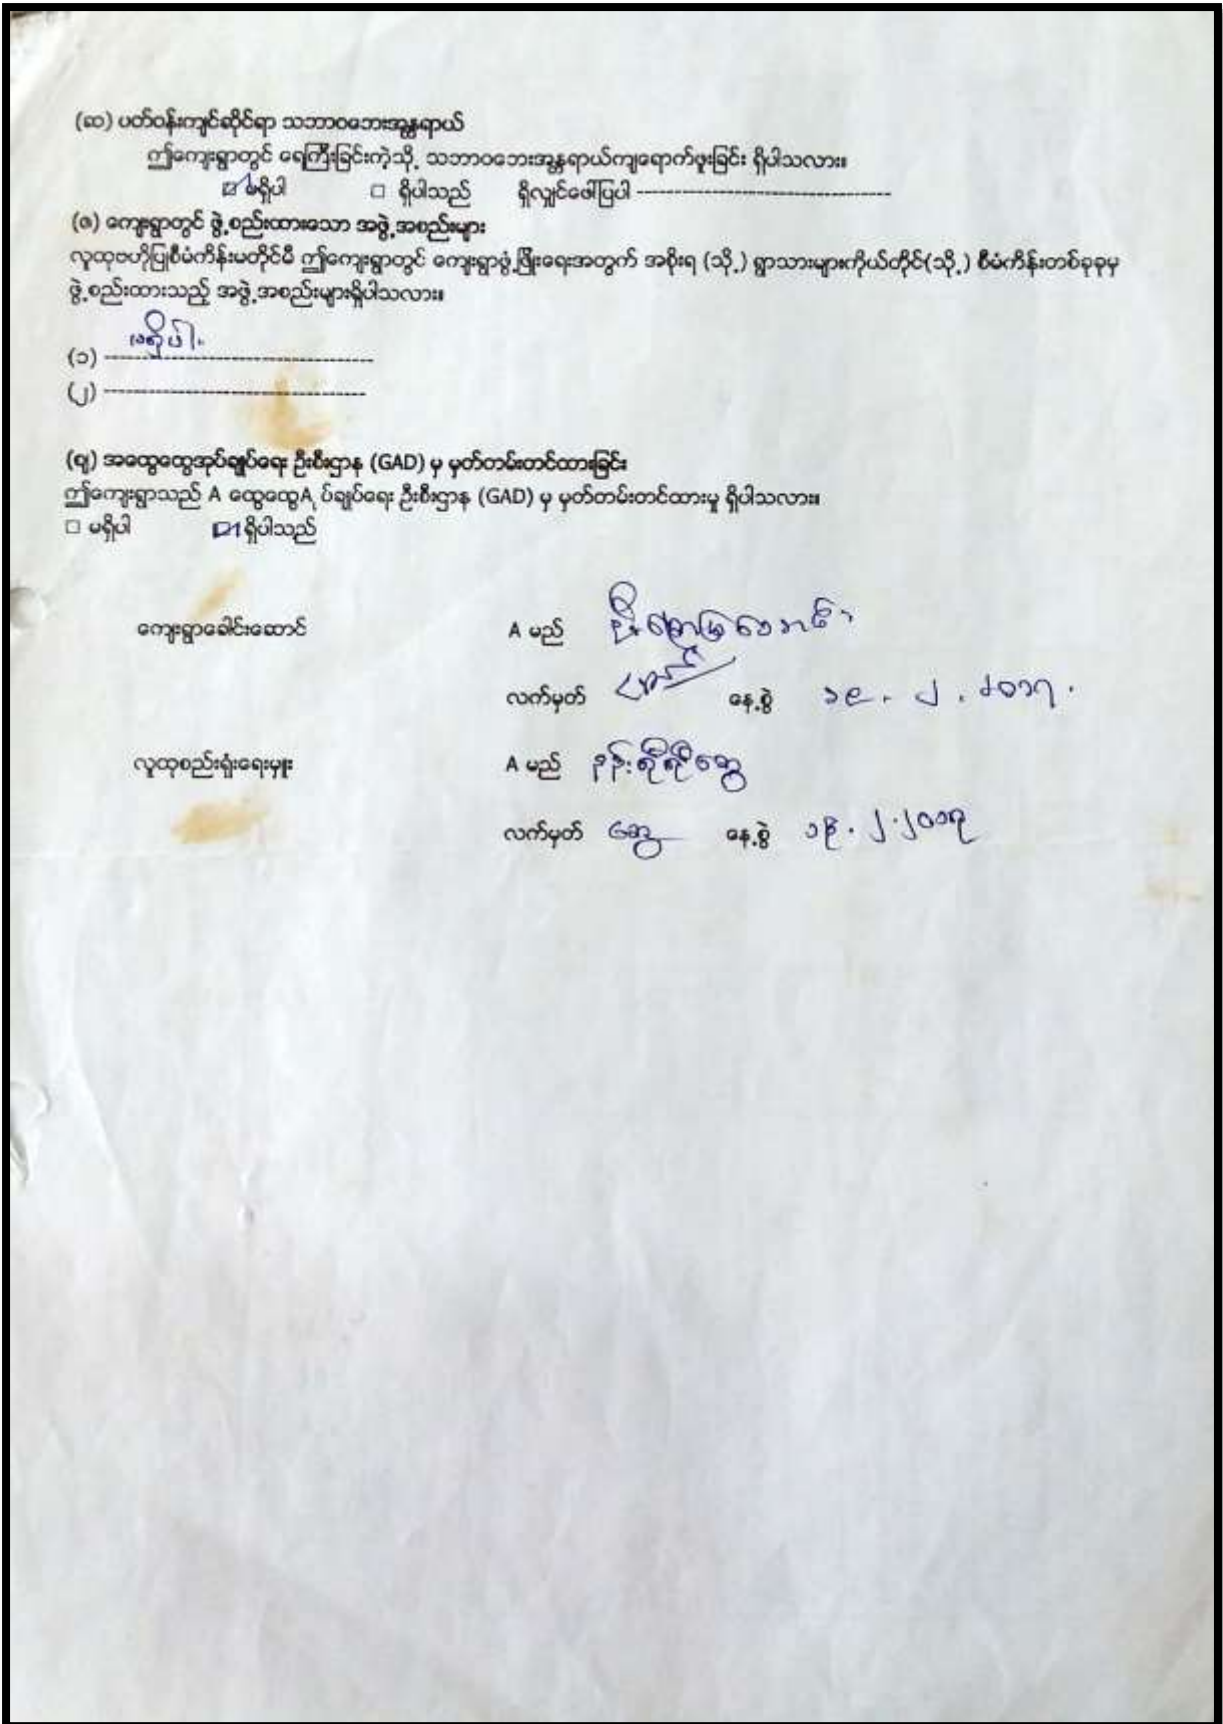 (ဆ) ပတ်ဝန်းကျင်ဆိုင်ရာ သဘာဝဘေးအန္တရာယ်
ဤကျေးရွာတွင် ရေကြီးခြင်းကဲ့သို့ သဘာဝဘေးအန္တရာယ်ကျရောက်ဖူးခြင်း ရှိပါသလား။
☑ မရှိပါ □ ရှိပါသည် ရှိလျှင်ဖေါ်ပြပါ ------------------------------------
(ဇ) ကျေးရွာတွင် ဖွဲ့စည်းထားသော အဖွဲ့အစည်းများ
လူထုဗဟိုပြုစီမံကိန်းမတိုင်မီ ဤကျေးရွာတွင် ကျေးရွာဖွံ့ဖြိုးရေးအတွက် အစိုးရ (သို့) ရွာသားများကိုယ်တိုင်(သို့) စီမံကိန်းတစ်ခုခုမှ
ဖွဲ့စည်းထားသည့် အဖွဲ့အစည်းများရှိပါသလား။
(၁) မရှိပါ။
(၂) ------------------------------------
(ဈ) အထွေထွေအုပ်ချုပ်ရေး ဦးစီးဌာန (GAD) မှ မှတ်တမ်းတင်ထားခြင်း
ဤကျေးရွာသည် A ထွေထွေA ုပ်ချုပ်ရေး ဦးစီးဌာန (GAD) မှ မှတ်တမ်းတင်ထားမှု ရှိပါသလား။
□ မရှိပါ ☑ ရှိပါသည်
ကျေးရွာခေါင်းဆောင် A မည်
လက်မှတ် နေ့စွဲ ၁၉.၂.၂၀၁၇.
လူထုစည်းရုံးရေးမှူး A မည် နန်းရီရီဆွေ
လက်မှတ် ဆွေ နေ့စွဲ ၁၉.၂.၂၀၁၇